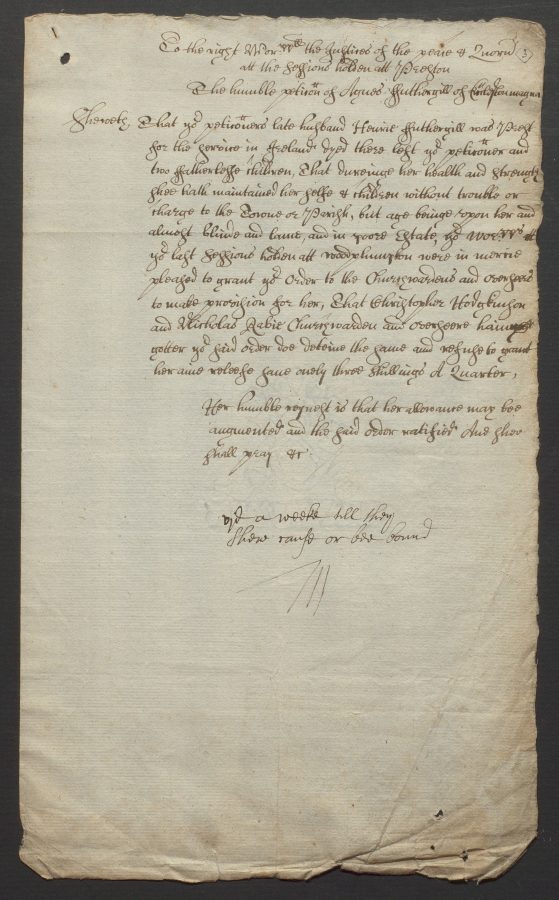 To the right Worpll the Justices of the peace & Quorū
att the Sessions holden att Preston
The humble peticōn of Agnes ffuthergill of
Sheweth That yr peticōners late husband Henrie ffuthergill was Prest
for the service in Ireland dyed there left yr peticōner and
two ffatherlesse children, That dureinge her health and strength
shee hath maintained her selfe & children without trouble or
charge to the Towne or Parish, but age beinge upon her and
almost blinde and lame, and in poore Estate, yr Worpps att
yr last Sessions holden att woodplumpton were in mercie
pleased to grant yr order to the Churchwardens and overseers
to make provision for her, That Christopher Hodgkinson
and Nicholas Churchwarden and overseere haveinge
gotten yr said order doe deteine the same and refuse to grant
her anie releefe save onely three shillings A Quarter,
Her humble request is that her allowance may bee
augmented and the said order ratified And shee
shall pray &c
vjd a weeke till they
shew cause or bee bound